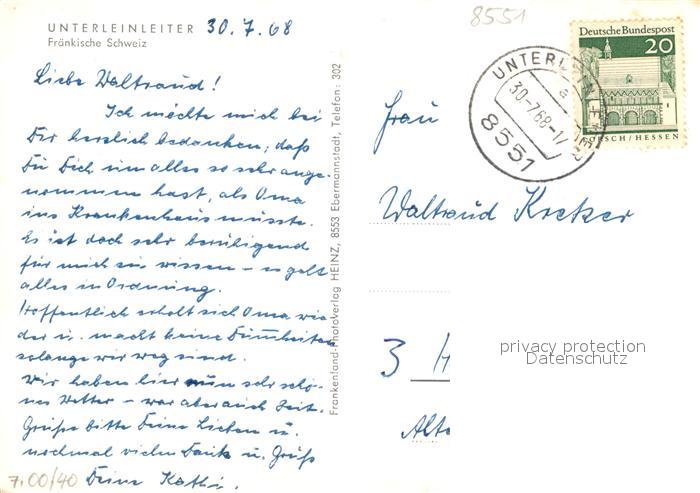 UNTERLEINLEITER 30.7.68
Fränkische Schweiz
Liebe Waltraud!
Ich möchte mich bei
Dir herzlich bedanken, daß
Du Dich um alles so sehr ange-
nommen hast, als Oma
ins Krankenhaus müsste.
Es ist doch sehr beruhigend
für mich zu wissen – es geht
alles in Ordnung.
Hoffentlich erholt sich Oma wie
der u. macht keine Dummheiten
solange wir weg sind.
Wir haben hier nun sehr schö-
nes Wetter – war aber auch Zeit.
Grüße bitte Deine Lieben u.
nochmal vielen Dank u. Gruß
Deine Käthi.
7.00/40
Frankenland-Photoverlag HEINZ, 8553 Ebermannstadt, Telefon: 302
8551
Deutsche Bundespost
20
LORSCH/HESSEN
UNTERLEIN
a
30.-7.68-17
8551
Frau
Waltraud Kreker
3 H
privacy protection
Datenschutz
Alte